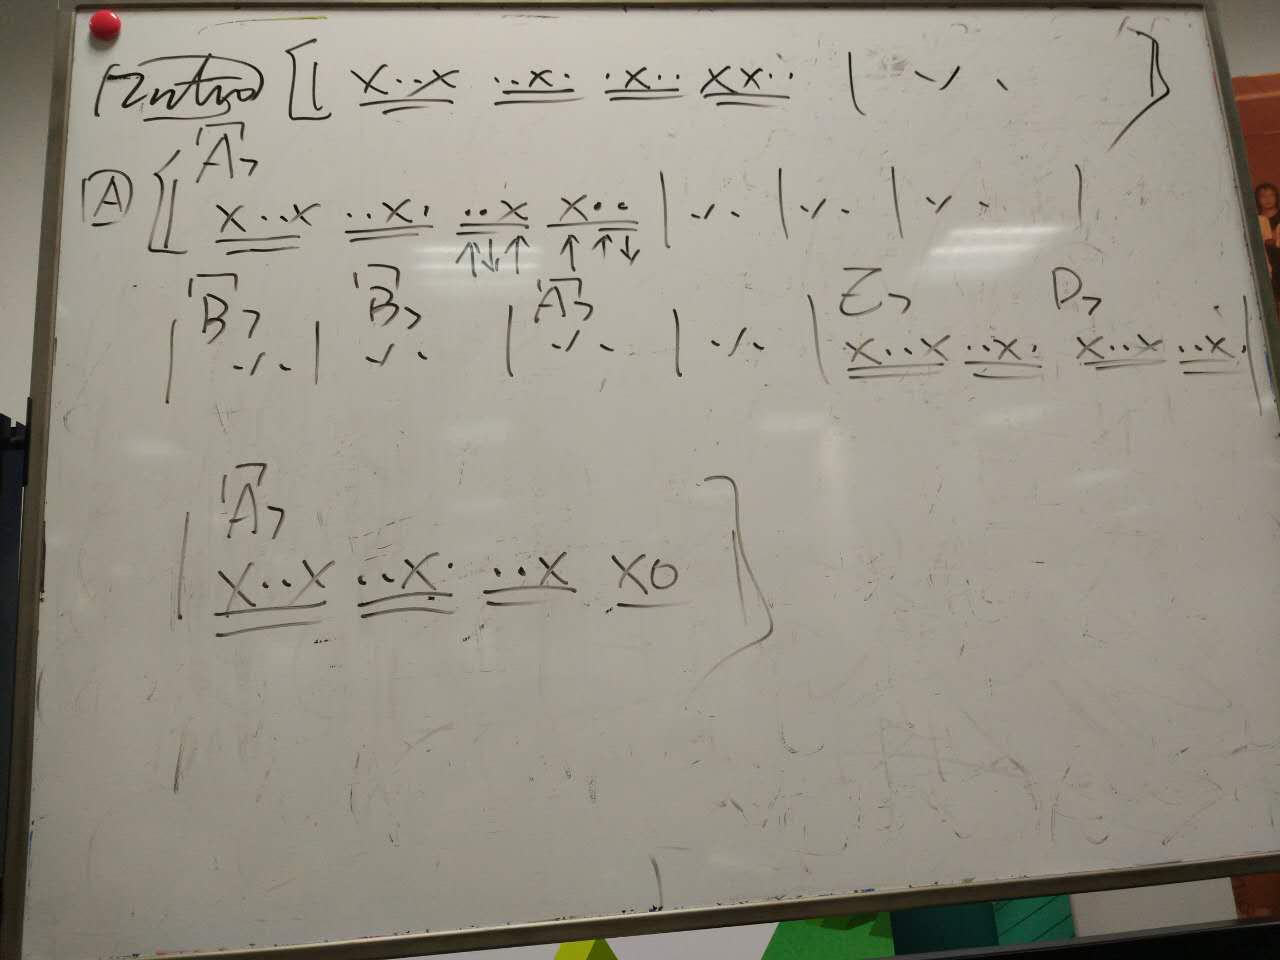 Intro [| X··X ··X· ·X·· XX·· | ·/· ]
A7
A [| X··X ··X· ··X X·· | ·/· | ·/· | ·/· |
↑↓↑ ↑ ↑↓
B7 B7 A7 E7 D7
| ·/· | ·/· | ·/· | ·/· | X··X ··X· X··X ··X· |
A7
| X··X ··X· ··X X0 ]